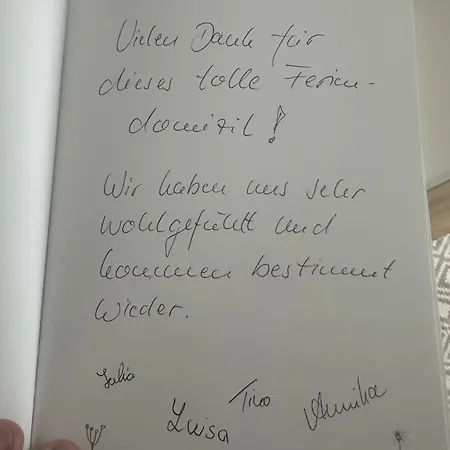 Vielen Dank für
dieses tolle Ferien-
domizil!
Wir haben uns sehr
wohlgefühlt und
kommen bestimmt
wieder.
Julia
Luisa Tino Annika